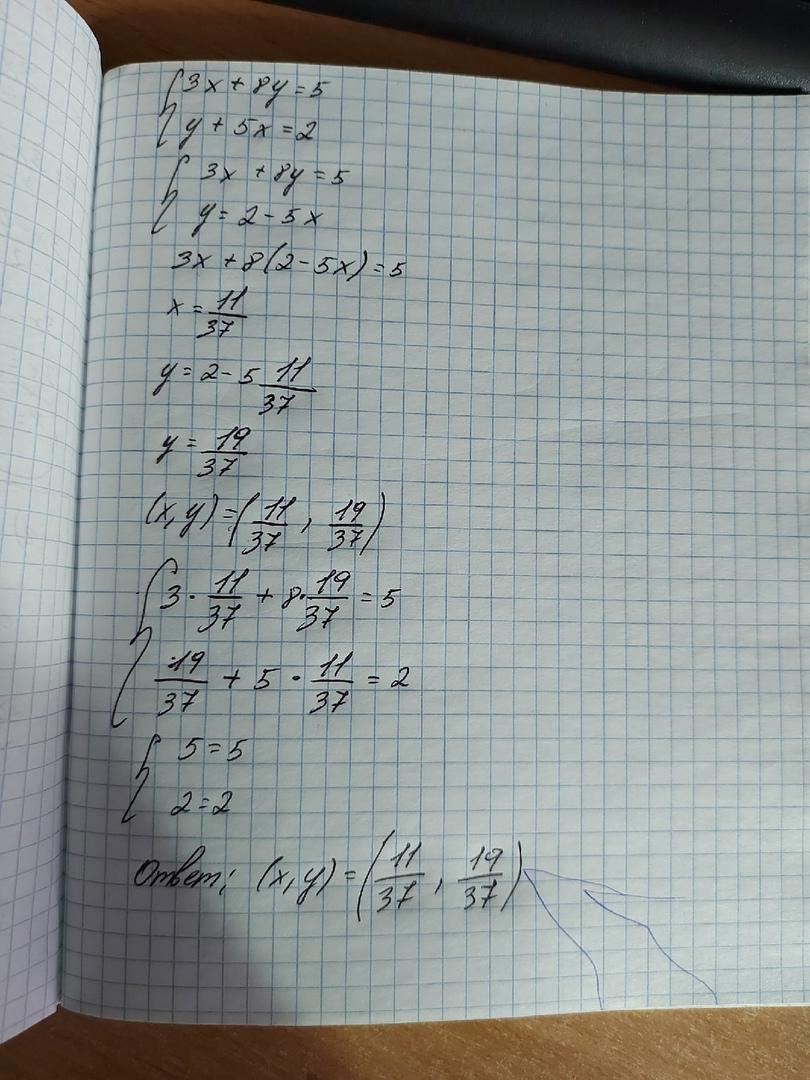 3x + 8y = 5
y + 5x = 2
3x + 8y = 5
y = 2 - 5x
3x + 8(2 - 5x) = 5
x = 11/37
y = 2 - 5 11/37
y = 19/37
(x, y) = (11/37, 19/37)
3 · 11/37 + 8 · 19/37 = 5
19/37 + 5 · 11/37 = 2
5 = 5
2 = 2
Ответ; (x, y) = (11/37, 19/37)